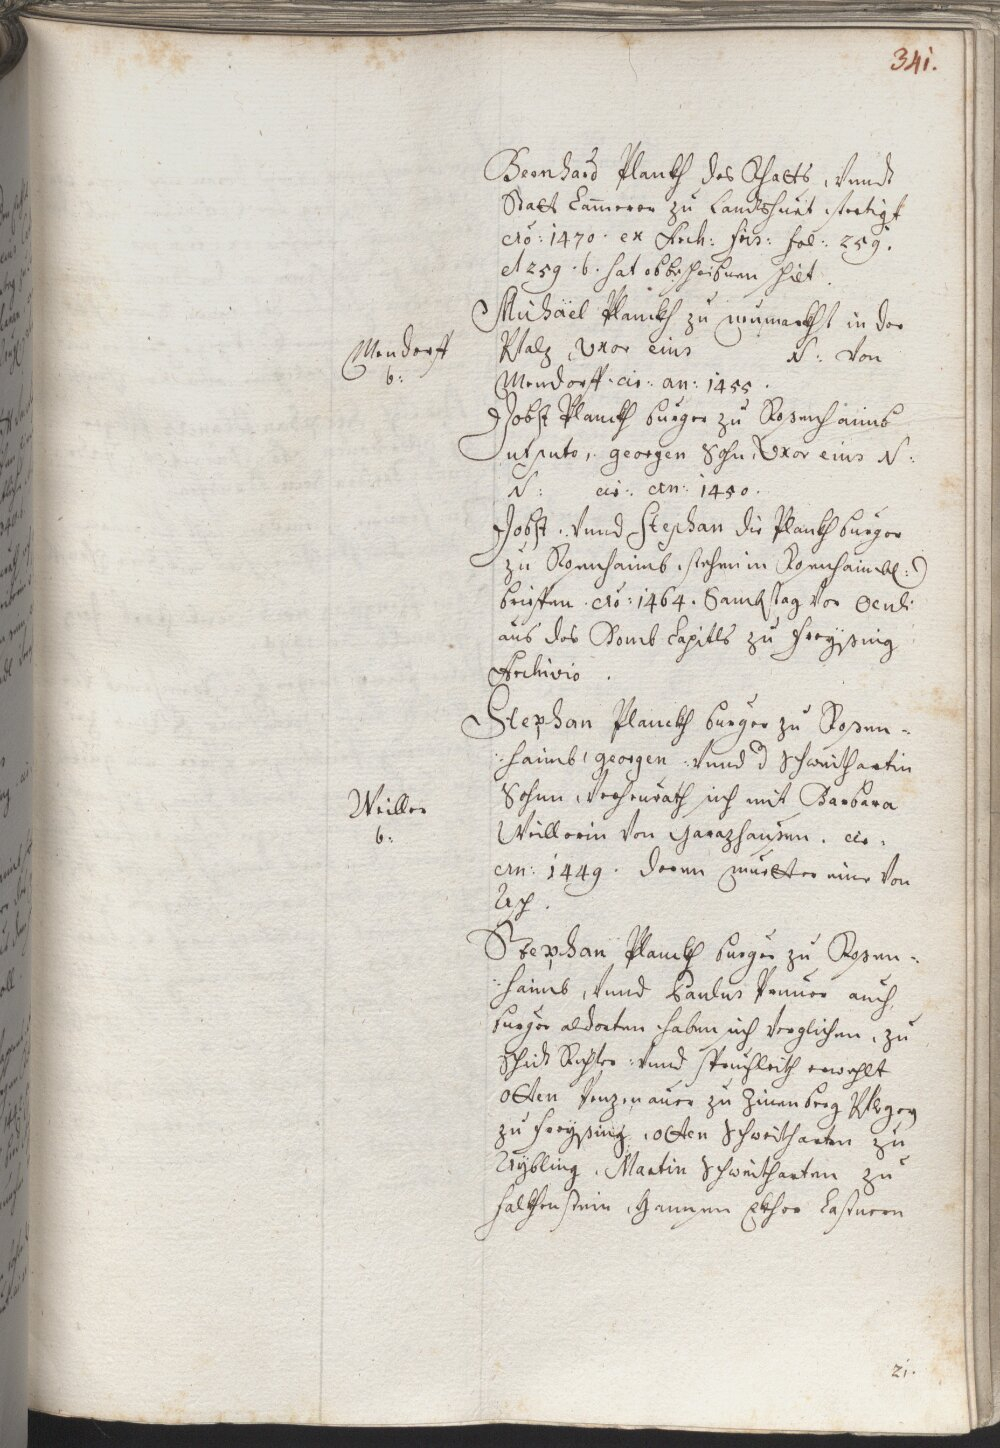 341.
Bernhard Planckh des Rhatts, Vnndt
Statt Cammerer zu Landtshuet, sterbigt
Aõ: 1470. ex Arch: fris: fol: 259.
et 259. b. hat obbeschribnen Schilt.
Michäel Planckh zu neumarckht in der
Pfalz, Vxor eius N: Von
Mendorff. cir: an: 1455.
Mendorff
6:
Jobst Planckh burger zu Rosenhaimb
ut puto, georgen Sohn, Vxor eius N:
N: cir: An: 1450.
Jobst. Vnnd Stephan die Planckh burger
zu Rosenhaimb, stehen in Rosenhaimb:
brieffen. Aõ: 1464. Sambstag Vor Oculi
aus des Domb Capitls zu Freÿsing
Archivio.
Stephan Planckh burger zu Rosen-
haimb, georgen Vnnd d Schweithartin
Sohn, Verheurath sich mit Barbara
Weillerin Von Garazhausen. cir.
An: 1449. deren muetter eine Von
Asch.
Weiller
6:
Stephan Planckh burger zu Rosen-
haimb, Vnnd Paulus Prauer auch
burger aldorten haben sich Verglichen, zu
Schidt Richter Vnnd spruchleith erwehlt
Otten Penzenauer zu Zinenberg Pfleger
zu Freÿsing, Otten Schweitharten zu
Aÿbling, Martin Schweitharten zu
falkhenstein, Hannsen Ekher Casstnern
zi.